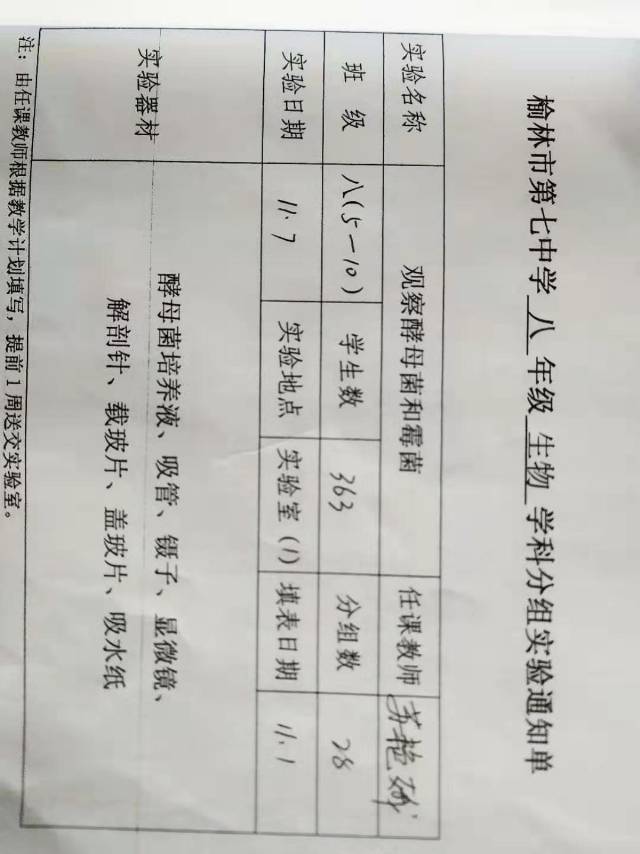 榆林市第七中学 八 年级 生物 学科分组实验通知单
实验名称 观察酵母菌和霉菌 任课教师 苏艳
班 级 八(5—10) 学生数 363 分组数 28
实验日期 11.7 实验地点 实验室(1) 填表日期 11.1
实验器材 酵母菌培养液、吸管、镊子、显微镜、
解剖针、载玻片、盖玻片、吸水纸
注：由任课教师根据教学计划填写，提前1周送交实验室。